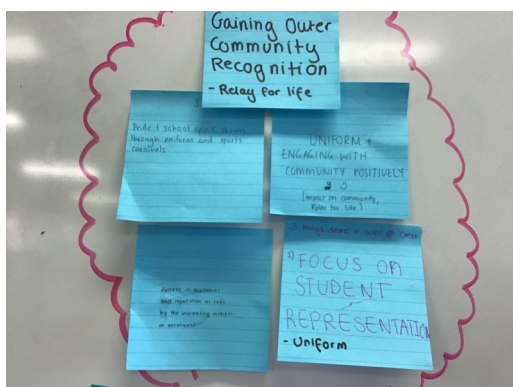 Gaining Outer
Community
Recognition
- Relay for life
Pride + school spirit shown
through uniform and sports
carnivals
UNIFORM +
ENGAGING WITH
COMMUNITY POSITIVELY
(impact on community,
Relay for Life)
Success in academics
and reputation as
by the increasing interest
in enrolment
3 things done well @
1) FOCUS ON
STUDENT
REPRESENTATION
- Uniform